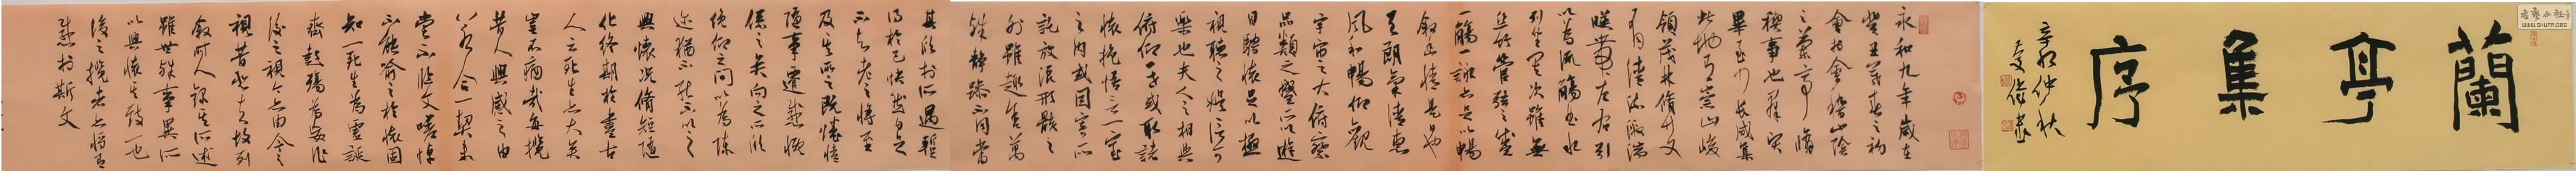 蘭亭集序
辛卯仲秋
永和九年歲在
癸丑暮春之初
會於會稽山陰
之蘭亭脩
稧事也群賢
畢至少長咸集
此地有崇山峻
領茂林脩竹又
有清流激湍
映帶左右引
以為流觴曲水
列坐其次雖無
絲竹管弦之盛
一觴一詠亦足以暢
敘幽情是日也
天朗氣清惠
風和暢仰觀
宇宙之大俯察
品類之盛所以遊
目騁懷足以極
視聽之娛信可
樂也夫人之相與
俯仰一世或取諸
懷抱悟言一室
之內或因寄所
託放浪形骸之
外雖趣舍萬
殊靜躁不同當
其欣於所遇
得於己快然自足
不知老之將至
及其所之既惓情
隨事遷感慨
係之矣向之所欣
俛仰之間以為陳
迹猶不能不以之
興懷況脩短隨
化終期於盡古
人云死生亦大矣
豈不痛哉每攬
昔人興感之由
若合一契未
嘗不臨文嗟悼
不能喻之於懷固
知一死生為虛誕
齊彭殤為妄作
後之視今亦由今之
視昔悲夫故列
敘時人錄其所述
雖世殊事異所
以興懷其致一也
後之攬者亦將有
感於斯文
WWW.SHUFA.ORG